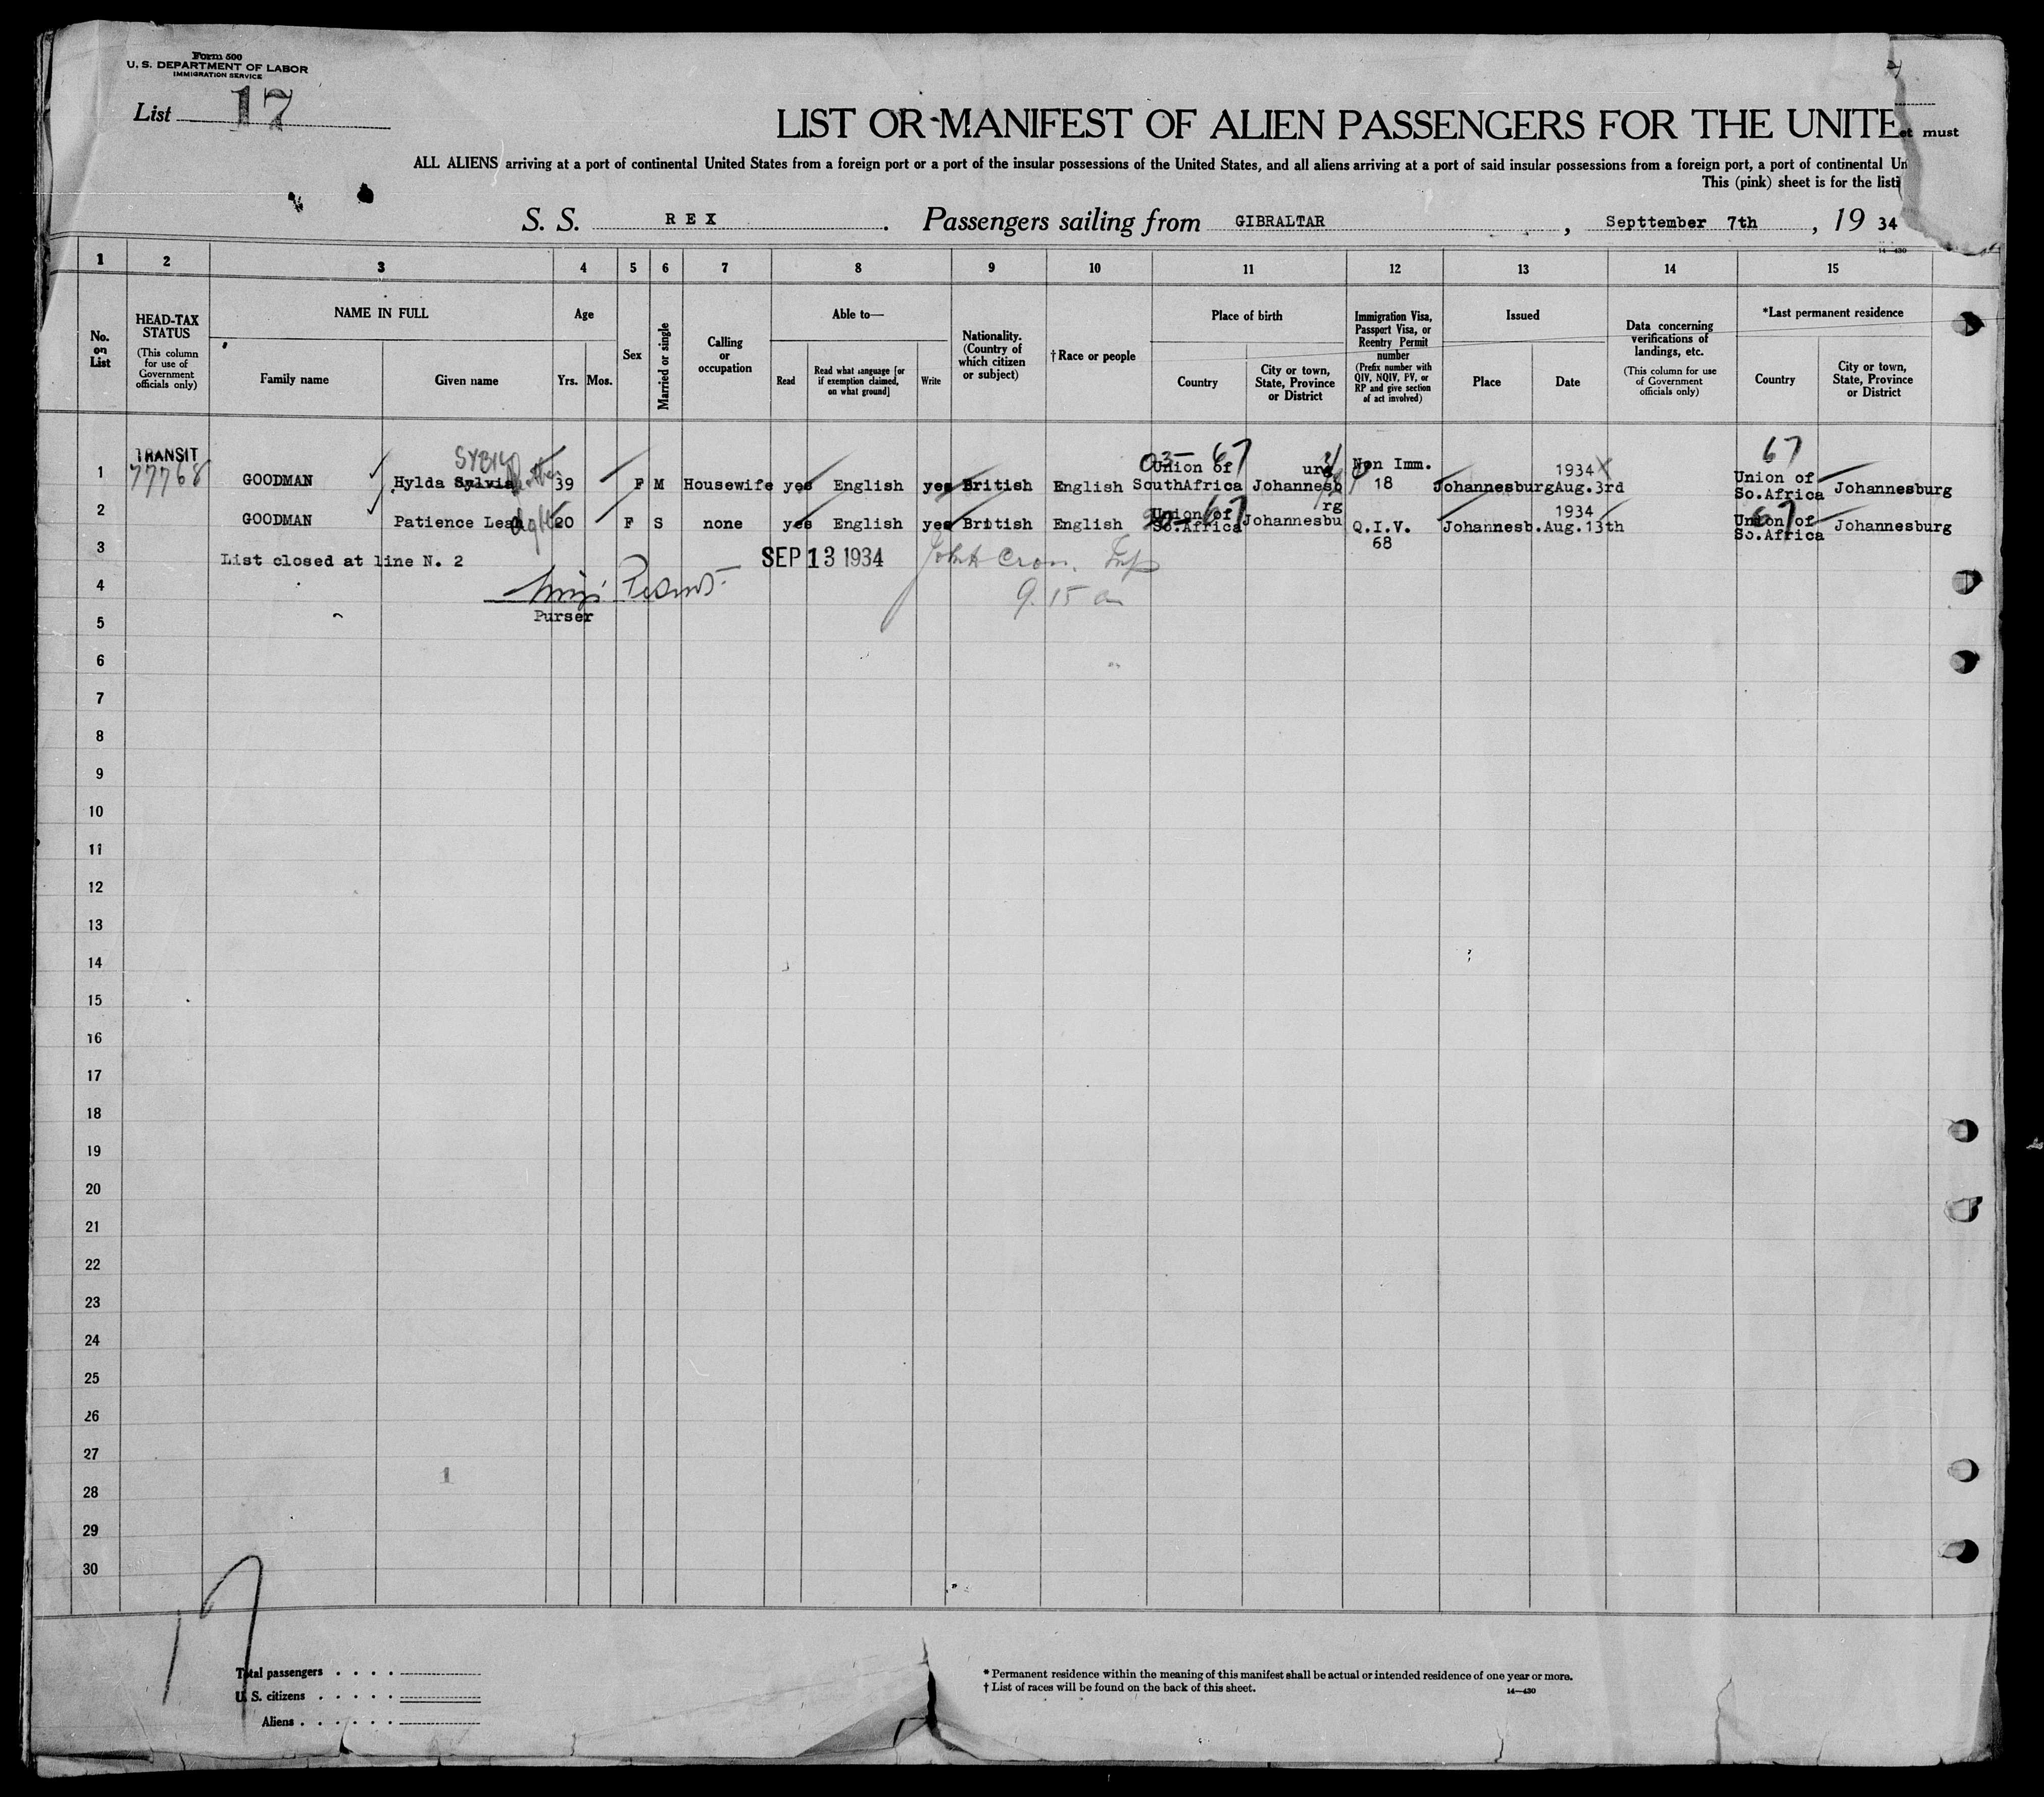 Form 500
U. S. DEPARTMENT OF LABOR
IMMIGRATION SERVICE
List 17
LIST OR MANIFEST OF ALIEN PASSENGERS FOR THE UNITE
et must
ALL ALIENS arriving at a port of continental United States from a foreign port or a port of the insular possessions of the United States, and all aliens arriving at a port of said insular possessions from a foreign port, a port of continental Un
This (pink) sheet is for the listi
S. S. REX. Passengers sailing from GIBRALTAR, Septtember 7th, 19 34
14—430
1 2 3 4 5 6 7 8 9 10 11 12 13 14 15
No. on List
HEAD-TAX STATUS
(This column for use of Government officials only)
NAME IN FULL
Family name
Given name
Age
Yrs. Mos.
Sex
Married or single
Calling or occupation
Able to—
Read
Read what language [or if exemption claimed, on what ground]
Write
Nationality. (Country of which citizen or subject)
†Race or people
Place of birth
Country
City or town, State, Province or District
Immigration Visa, Passport Visa, or Reentry Permit number
(Prefix number with QIV, NQIV, PV, or RP and give section of act involved)
Issued
Place
Date
Data concerning verifications of landings, etc.
(This column for use of Government officials only)
*Last permanent residence
Country
City or town, State, Province or District
TRANSIT SYBIL 67 Non Imm. 1934 67
1 77768 GOODMAN Hylda Sylvia 39 F M Housewife yes English yes British English Union of SouthAfrica Johannesburg 18 Johannesburg Aug.3rd Union of So.Africa Johannesburg
2 GOODMAN Patience Leah 20 F S none yes English yes British English Union of So.Africa 67 Johannesburg Q.I.V. 68 Johannesb. Aug.13th 1934 Union of So.Africa 67 Johannesburg
3 List closed at line N. 2 SEP 13 1934
4 9.15 am
Purser
5
6
7
8
9
10
11
12
13
14
15
16
17
18
19
20
21
22
23
24
25
26
27
1
28
29
30
17
Total passengers
U. S. citizens
Aliens
* Permanent residence within the meaning of this manifest shall be actual or intended residence of one year or more.
† List of races will be found on the back of this sheet.
14—430